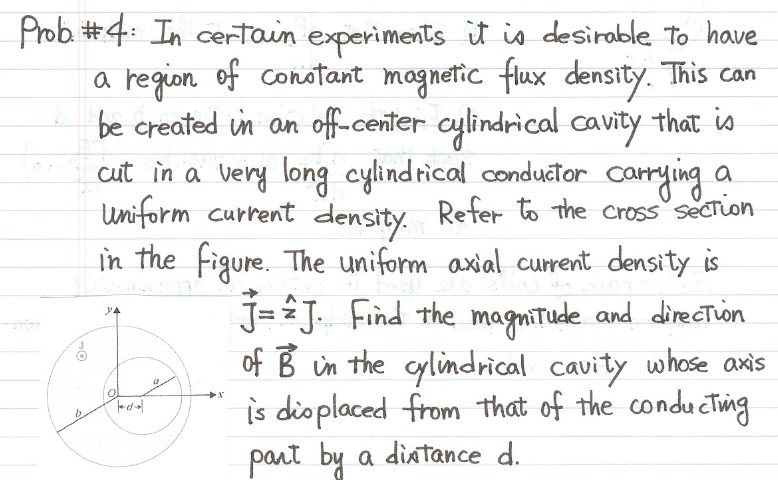 Prob. #4: In certain experiments it is desirable to have
a region of constant magnetic flux density. This can
be created in an off-center cylindrical cavity that is
cut in a very long cylindrical conductor carrying a
uniform current density. Refer to the cross section
in the figure. The uniform axial current density is
J⃗ = ẑ J. Find the magnitude and direction
of B⃗ in the cylindrical cavity whose axis
is displaced from that of the conducting
part by a distance d.
y
J
O
a
x
d
b